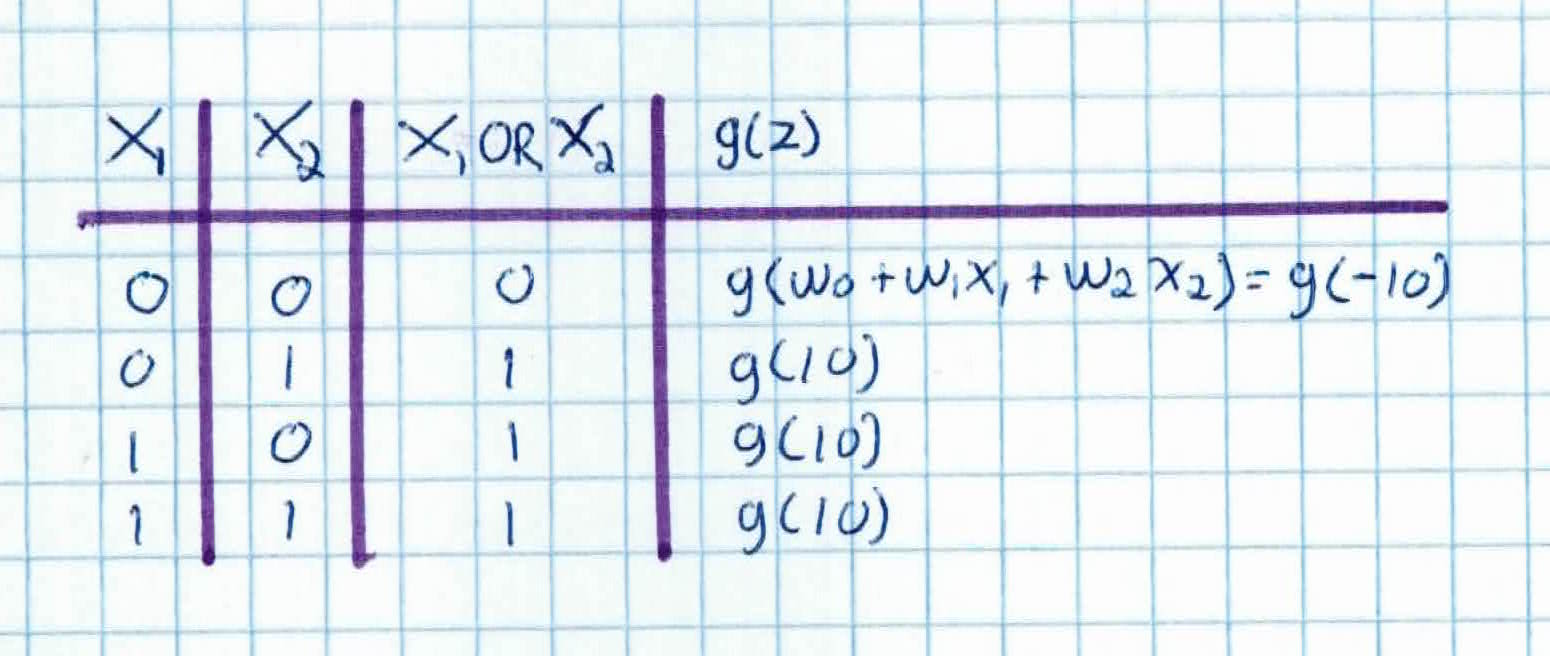 X₁ X₂ X₁ OR X₂ g(z)
0 0 0 g(w₀ + w₁x₁ + w₂x₂) = g(-10)
0 1 1 g(10)
1 0 1 g(10)
1 1 1 g(10)